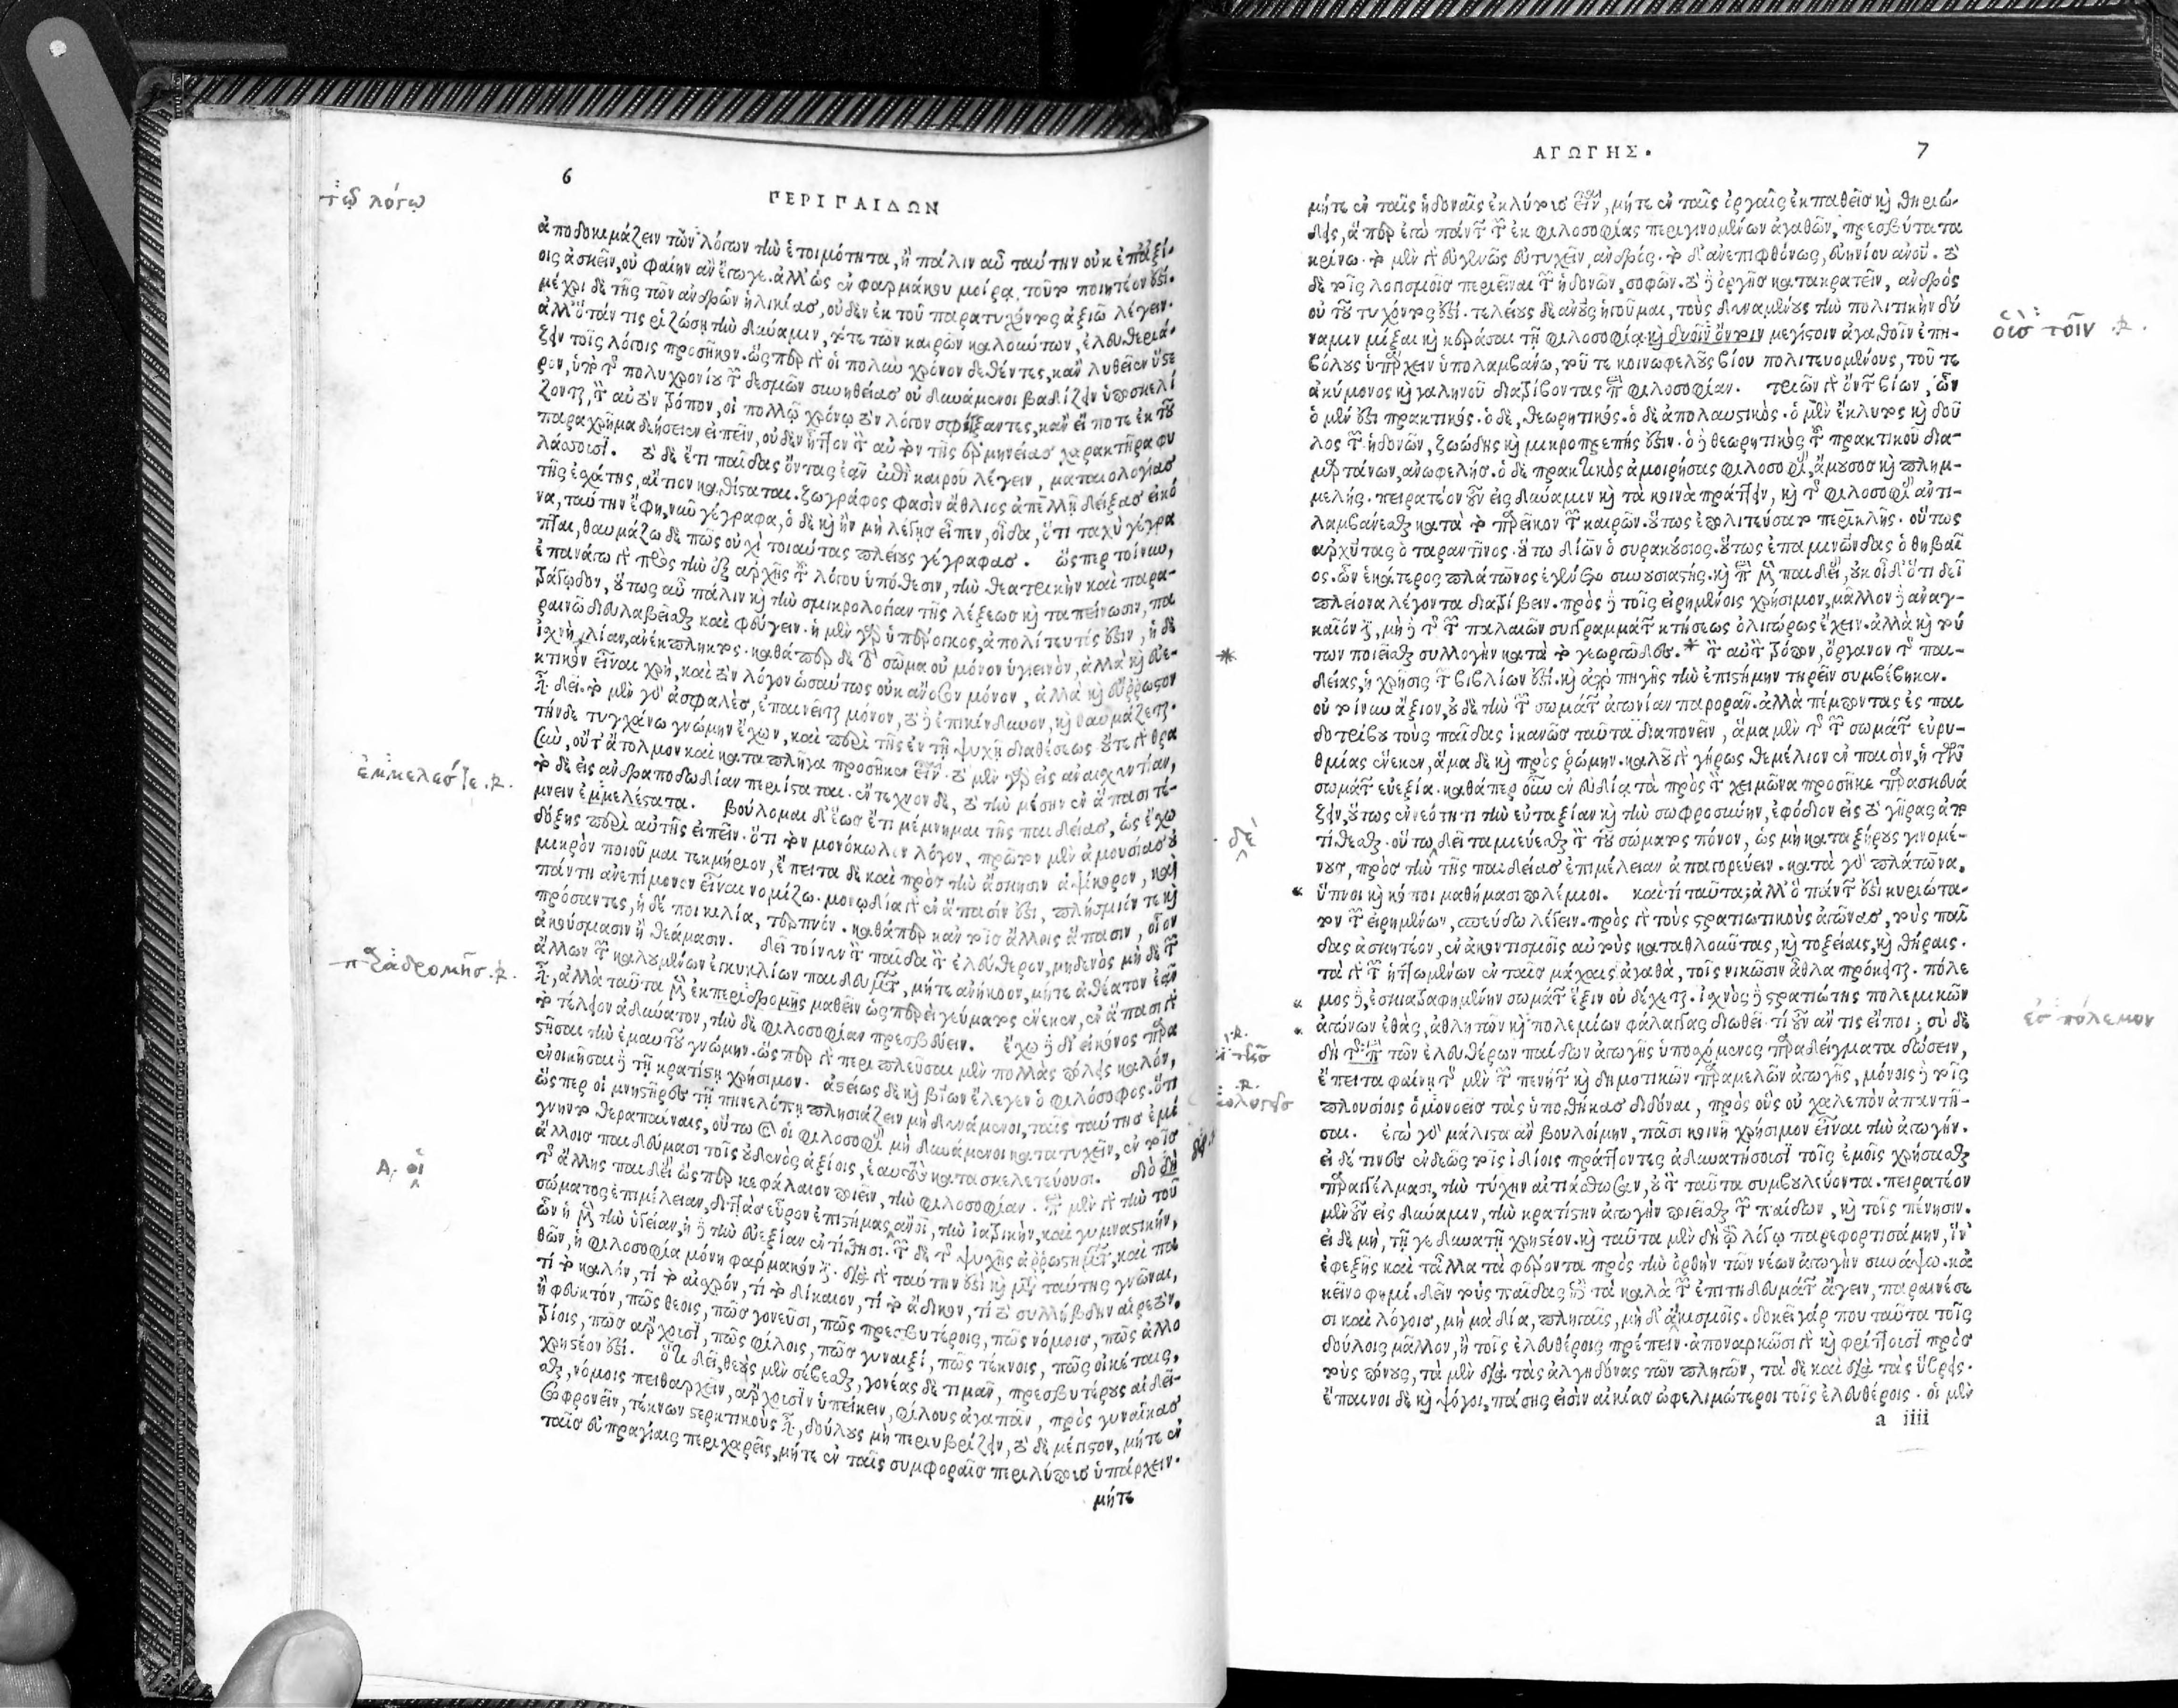 6
ΠΕΡΙ ΠΑΙΔΩΝ
ἀποδοκιμάζειν τῶν λόγων τὴν ἑτοιμότητα, ἢ πάλιν αὖ ταύτην οὐκ ἐπ' ἀξί-
οις ἀσκεῖν, οὐ φαίην ἂν ἔγωγε. ἀλλ' ὡς ἐν φαρμάκου μοίρᾳ, τοῦτο ποιητέον ἐστί.
μέχρι δὲ τῆς τῶν ἀνδρῶν ἡλικίας, οὐδὲν ἐκ τοῦ παρατυχόντος ἀξιῶ λέγειν.
ἀλλ' ὅταν τις ῥιζώσῃ τὴν δύναμιν, τότε τῶν καιρῶν καλούντων, ἐλευθεριά-
ζειν τοῖς λόγοις προσῆκον. ὥσπερ γὰρ οἱ πολὺν χρόνον δεθέντες, κἂν λυθεῖεν ὕστε
ρον, ὑπὸ τῆς πολυχρονίου τῶν δεσμῶν συνηθείας οὐ δυνάμενοι βαδίζειν ὑποσκελί
ζονται, τὸν αὐτὸν τρόπον, οἱ πολλῷ χρόνῳ τὸν λόγον σφίγξαντες, κἂν εἴ ποτε ἐκ τοῦ
παραχρῆμα δεήσειεν εἰπεῖν, οὐδὲν ἧττον τὸν αὐτὸν τῆς ἑρμηνείας χαρακτῆρα φυ
λάττουσι. τὸ δὲ ἔτι παῖδας ὄντας ἐᾶν ἐπὶ καιροῦ λέγειν, ματαιολογίας
τῆς ἐσχάτης, αἴτιον καθίσταται. ζωγράφος φασὶν ἄθλιος ἀπελλῇ δείξας εἰκό
να, ταύτην ἔφη, νῦν γέγραφα, ὁ δὲ καὶ ἢν μὴ λέγῃς εἶπεν, οἶδα, ὅτι ταχὺ γέγρα
πται, θαυμάζω δὲ πῶς οὐχὶ τοιαύτας πλείους γέγραφας. ὥσπερ τοίνυν,
ἐπανάγω γὰρ πρὸς τὴν ἐξ ἀρχῆς τοῦ λόγου ὑπόθεσιν, τὴν θεατρικὴν καὶ παρα-
τράγῳδον, οὕτως αὖ πάλιν καὶ τὴν σμικρολογίαν τῆς λέξεως καὶ ταπείνωσιν, πα
ραινῶ διευλαβεῖσθαι καὶ φεύγειν. ἡ μὲν γὰρ ὑπέρογκος, ἀπολίτευτός ἐστιν, ἡ δὲ
ἰσχνὴ λίαν, ἀνέκπληκτος. καθάπερ δὲ τὸ σῶμα οὐ μόνον ὑγιεινὸν, ἀλλὰ καὶ εὐε-
κτικὸν εἶναι χρὴ, καὶ τὸν λόγον ὡσαύτως οὐκ ἄνοσον μόνον, ἀλλὰ καὶ εὔρωστον
εἶναι δεῖ. τὸ μὲν γὰρ ἀσφαλὲς, ἐπαινεῖται μόνον, τὸ δὲ ἐπικίνδυνον, καὶ θαυμάζεται.
τήνδε τυγχάνω γνώμην ἔχων, καὶ περὶ τῆς ἐν τῇ ψυχῇ διαθέσεως οὔτε γὰρ θρα
σὺν, οὔτ' ἄτολμον καὶ καταπλῆγα προσῆκεν εἶναι. τὸ μὲν γὰρ εἰς ἀναισχυντίαν,
τὸ δὲ εἰς ἀνδραποδωδίαν περιίσταται. ἔντεχνον δὲ, τὸ τὴν μέσην ἐν ἅπασι τέ-
μνειν ἐμμελέστατα. βούλομαι δ' ἕως ἔτι μέμνημαι τῆς παιδείας, ὡς ἔχω
δόξης περὶ αὐτῆς εἰπεῖν. ὅτι τὸν μονόκωλον λόγον, πρῶτον μὲν ἀμουσίας οὐ
μικρὸν ποιοῦμαι τεκμήριον, ἔπειτα δὲ καὶ πρὸς τὴν ἄσκησιν ἀψίκορον, καὶ
πάντη ἀνεπίμονον εἶναι νομίζω. μονῳδία γὰρ ἐν ἅπασίν ἐστι, πλήσμιόν τε καὶ
πρόσαντες, ἡ δὲ ποικιλία, τερπνόν. καθάπερ κἀν τοῖς ἄλλοις ἅπασιν, οἷον
ἀκούσμασιν ἢ θεάμασιν. δεῖ τοίνυν τὸν παῖδα τὸν ἐλεύθερον, μηδενὸς μηδὲ τῶν
ἄλλων τῶν καλουμένων ἐγκυκλίων παιδευμάτων, μήτε ἀνήκοον, μήτε ἀθέατον ἐᾶν
εἶναι, ἀλλὰ ταῦτα μὲν ἐκ περιδρομῆς μαθεῖν ὡσπερεὶ γεύματος ἕνεκεν, ἐν ἅπασι γὰρ
τὸ τέλειον ἀδύνατον, τὴν δὲ φιλοσοφίαν πρεσβεύειν. ἔχω δὲ δι' εἰκόνος παρα
στῆσαι τὴν ἐμαυτοῦ γνώμην. ὥσπερ γὰρ περιπλεῦσαι μὲν πολλὰς πόλεις καλόν,
ἐνοικῆσαι δὲ τῇ κρατίστῃ χρήσιμον. ἀστείως δὲ καὶ βίων ἔλεγεν ὁ φιλόσοφος. ὅτι
ὥσπερ οἱ μνηστῆρες τῇ πηνελόπῃ πλησιάζειν μὴ δυνάμενοι, ταῖς ταύτης ἐμί
γνυντο θεραπαίναις, οὕτω καὶ οἱ φιλοσοφίας μὴ δυνάμενοι κατατυχεῖν, ἐν τοῖς
ἄλλοις παιδεύμασι τοῖς οὐδενὸς ἀξίοις, ἑαυτοὺς κατασκελετεύουσι. διὸ δὴ
τῆς ἄλλης παιδείας ὥσπερ κεφάλαιον ποιεῖν, τὴν φιλοσοφίαν. περὶ μὲν γὰρ τὴν τοῦ
σώματος ἐπιμέλειαν, διττὰς εὗρον ἐπιστήμας ἄνθρωποι, τὴν ἰατρικὴν, καὶ γυμναστικήν,
ὧν ἡ μὲν τὴν ὑγείαν, ἡ δὲ τὴν εὐεξίαν ἐντίθησι. τῶν δὲ τῆς ψυχῆς ἀρρωστημάτων, καὶ πα
θῶν, ἡ φιλοσοφία μόνη φάρμακόν ἐστι. διὰ γὰρ ταύτην ἐστὶ καὶ μετὰ ταύτης γνῶναι,
τί τὸ καλὸν, τί τὸ αἰσχρὸν, τί τὸ δίκαιον, τί τὸ ἄδικον, τί τὸ συλλήβδην αἱρετὸν,
ἢ φευκτόν, πῶς θεοῖς, πῶς γονεῦσι, πῶς πρεσβυτέροις, πῶς νόμοις, πῶς ἀλλο
τρίοις, πῶς ἄρχουσι, πῶς φίλοις, πῶς γυναιξί, πῶς τέκνοις, πῶς οἰκέταις,
χρηστέον ἐστί. ὅτι δεῖ, θεοὺς μὲν σέβεσθαι, γονέας δὲ τιμᾶν, πρεσβυτέρους αἰδεῖ-
σθαι, νόμοις πειθαρχεῖν, ἄρχουσιν ὑπείκειν, φίλους ἀγαπᾶν, πρὸς γυναῖκας
σωφρονεῖν, τέκνων στερκτικοὺς εἶναι, δούλους μὴ περιυβρίζειν, τὸ δὲ μέγιστον, μήτε ἐν
ταῖς εὐπραγίαις περιχαρεῖς, μήτε ἐν ταῖς συμφοραῖς περιλύπους ὑπάρχειν.
μήτε
τῷ λόγῳ
ἐμμελέστε .R.
παραδρομῆς .R.
Α. οἱ
ΑΓΩΓΗΣ.
7
μήτε ἐν ταῖς ἡδοναῖς ἐκλύτους εἶναι, μήτε ἐν ταῖς ὀργαῖς ἐκπαθεῖς καὶ θηριώ-
δεις, ἅπερ ἐγὼ πάντων τῶν ἐκ φιλοσοφίας περιγινομένων ἀγαθῶν, πρεσβύτατα
κρίνω. τὸ μὲν γὰρ εὐγενῶς εὐτυχεῖν, ἀνδρός. τὸ δ' ἀνεπιφθόνως, εὐηνίου ἀνθρώπου. τὸ
δὲ τοῖς λογισμοῖς περιεῖναι τῶν ἡδονῶν, σοφῶν. τὸ δὲ ὀργῆς κατακρατεῖν, ἀνδρὸς
οὐ τοῦ τυχόντος ἐστί. τελείους δὲ ἀνθρώπους ἡγοῦμαι, τοὺς δυναμένους τὴν πολιτικὴν δύ
ναμιν μίξαι καὶ κεράσαι τῇ φιλοσοφίᾳ καὶ δυοῖν ὄντοιν μεγίστοιν ἀγαθοῖν ἐπη-
βόλους ὑπάρχειν ὑπολαμβάνω, τοῦ τε κοινωφελοῦς βίου πολιτευομένους, τοῦ τε
ἀκύμονος καὶ γαληνοῦ διατρίβοντας περὶ φιλοσοφίαν. τριῶν γὰρ ὄντων βίων, ὧν
ὁ μέν ἐστι πρακτικός. ὁ δὲ, θεωρητικός. ὁ δὲ ἀπολαυστικὸς. ὁ μὲν ἔκλυτος καὶ δοῦ
λος τῶν ἡδονῶν, ζωώδης καὶ μικροπρεπής ἐστιν. ὁ δὲ θεωρητικὸς τοῦ πρακτικοῦ δια-
μαρτάνων, ἀνωφελής. ὁ δὲ πρακτικὸς ἀμοιρήσας φιλοσοφίας, ἄμουσος καὶ πλημ-
μελής. πειρατέον οὖν εἰς δύναμιν καὶ τὰ κοινὰ πράττειν, καὶ τῆς φιλοσοφίας ἀντι-
λαμβάνεσθαι κατὰ τὸ παρεῖκον τῶν καιρῶν. οὕτως ἐπολιτεύσατο περικλῆς. οὕτως
ἀρχύτας ὁ ταραντῖνος. οὕτω δίων ὁ συρακόσιος. οὕτως ἐπαμινώνδας ὁ θηβαῖ
ος. ὧν ἑκάτερος πλάτωνος ἐγένετο συνουσιαστής. καὶ περὶ μὲν παιδείας, οὐκ οἶδ' ὅτι δεῖ
πλείονα λέγοντα διατρίβειν. πρὸς δὲ τοῖς εἰρημένοις χρήσιμον, μᾶλλον δὲ ἀναγ-
καῖόν ἐστι, μὴ δὲ τῆς τῶν παλαιῶν συγγραμμάτων κτήσεως ὀλιγώρως ἔχειν. ἀλλὰ καὶ τού
των ποιεῖσθαι συλλογὴν κατὰ τὸ γεωργῶδες. * τὸν αὐτὸν τρόπον, ὄργανον τῆς παι-
δείας, ἡ χρῆσις τῶν βιβλίων ἐστί. καὶ ἀπὸ πηγῆς τὴν ἐπιστήμην τηρεῖν συμβέβηκεν.
οὐ τοίνυν ἄξιον, οὐδὲ τὴν τῶν σωμάτων ἀγωνίαν παρορᾶν. ἀλλὰ πέμποντας ἐς παι
δοτρίβου τοὺς παῖδας ἱκανῶς ταῦτα διαπονεῖν, ἅμα μὲν τῆς τῶν σωμάτων εὐρυ-
θμίας ἕνεκεν, ἅμα δὲ καὶ πρὸς ῥώμην. καλοῦ γὰρ γήρως θεμέλιον ἐν παισὶν, ἡ τῶν
σωμάτων εὐεξία. καθάπερ οὖν ἐν εὐδίᾳ τὰ πρὸς τὸν χειμῶνα προσῆκε παρασκευά
ζειν, οὕτως ἐν νεότητι τὴν εὐταξίαν καὶ τὴν σωφροσύνην, ἐφόδιον εἰς τὸ γῆρας ἀπο
τίθεσθαι. οὕτω δεῖ ταμιεύεσθαι τὸν τοῦ σώματος πόνον, ὡς μὴ καταξήρους γινομέ-
νους, πρὸς τὴν τῆς παιδείας ἐπιμέλειαν ἀπαγορεύειν. κατὰ γὰρ πλάτωνα,
ὕπνοι καὶ κόποι μαθήμασι πολέμιοι. καὶ τί ταῦτα; ἀλλ' ὃ πάντων ἐστὶ κυριώτα-
τον τῶν εἰρημένων, σπεύδω λέγειν. πρὸς γὰρ τοὺς στρατιωτικοὺς ἀγῶνας, τοὺς παῖ
δας ἀσκητέον, ἐν ἀκοντισμοῖς αὐτοὺς καταθλοῦντας, καὶ τοξείαις, καὶ θήραις.
τὰ γὰρ τῶν ἡττωμένων ἐν ταῖς μάχαις ἀγαθὰ, τοῖς νικῶσιν ἆθλα πρόκειται. πόλε
μος δὲ, ἐσκιατραφημένην σωμάτων ἕξιν οὐ δέχεται. ἰσχνὸς δὲ στρατιώτης πολεμικῶν
ἀγώνων ἐθὰς, ἀθλητῶν καὶ πολεμίων φάλαγγας διωθεῖ. τί οὖν ἄν τις εἴποι; σὺ δὲ
δὴ τὰ περὶ τῶν ἐλευθέρων παίδων ἀγωγῆς ὑποσχόμενος παραδείγματα δώσειν,
ἔπειτα φαίνῃ τῆς μὲν τῶν πενήτων καὶ δημοτικῶν παραμελῶν ἀγωγῆς, μόνοις δὲ τοῖς
πλουσίοις ὁμονοεῖς τὰς ὑποθήκας διδόναι, πρὸς οὓς οὐ χαλεπὸν ἀπαντῆ-
σαι. ἐγὼ γὰρ μάλιστα ἂν βουλοίμην, πᾶσι κοινῇ χρήσιμον εἶναι τὴν ἀγωγήν.
εἰ δέ τινες ἐνδεῶς τοῖς ἰδίοις πράττοντες ἀδυνατήσουσι τοῖς ἐμοῖς χρήσασθαι
παραγγέλμασι, τὴν τύχην αἰτιάσθωσαν, οὐ τὸν ταῦτα συμβουλεύοντα. πειρατέον
μὲν οὖν εἰς δύναμιν, τὴν κρατίστην ἀγωγὴν ποιεῖσθαι τῶν παίδων, καὶ τοῖς πένησιν.
εἰ δὲ μὴ, τῇ γε δυνατῇ χρηστέον. καὶ ταῦτα μὲν δὴ τῷ λόγῳ παρεφορτισάμην, ἵν'
ἐφεξῆς καὶ τἆλλα τὰ φέροντα πρὸς τὴν ὀρθὴν τῶν νέων ἀγωγὴν συνάψω. κἀ
κεῖνο φημί. δεῖν τοὺς παῖδας ἐπὶ τὰ καλὰ τῶν ἐπιτηδευμάτων ἄγειν, παραινέσε
σι καὶ λόγοις, μὴ μὰ δία, πληγαῖς, μὴ δ' αἰκισμοῖς. δοκεῖ γάρ που ταῦτα τοῖς
δούλοις μᾶλλον, ἢ τοῖς ἐλευθέροις πρέπειν. ἀποναρκῶσι γὰρ καὶ φρίττουσι πρὸς
τοὺς πόνους, τὰ μὲν διὰ τὰς ἀλγηδόνας τῶν πληγῶν, τὰ δὲ καὶ διὰ τὰς ὕβρεις.
ἔπαινοι δὲ καὶ ψόγοι, πάσης εἰσὶν αἰκίας ὠφελιμώτεροι τοῖς ἐλευθέροις. οἱ μὲν
a iiii
οἷς τοῖν .R.
*
δὲ
ἐς πόλεμον